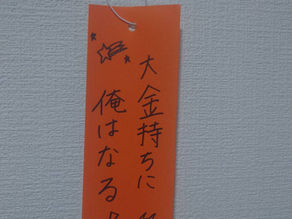 大金持ちに
俺はなる